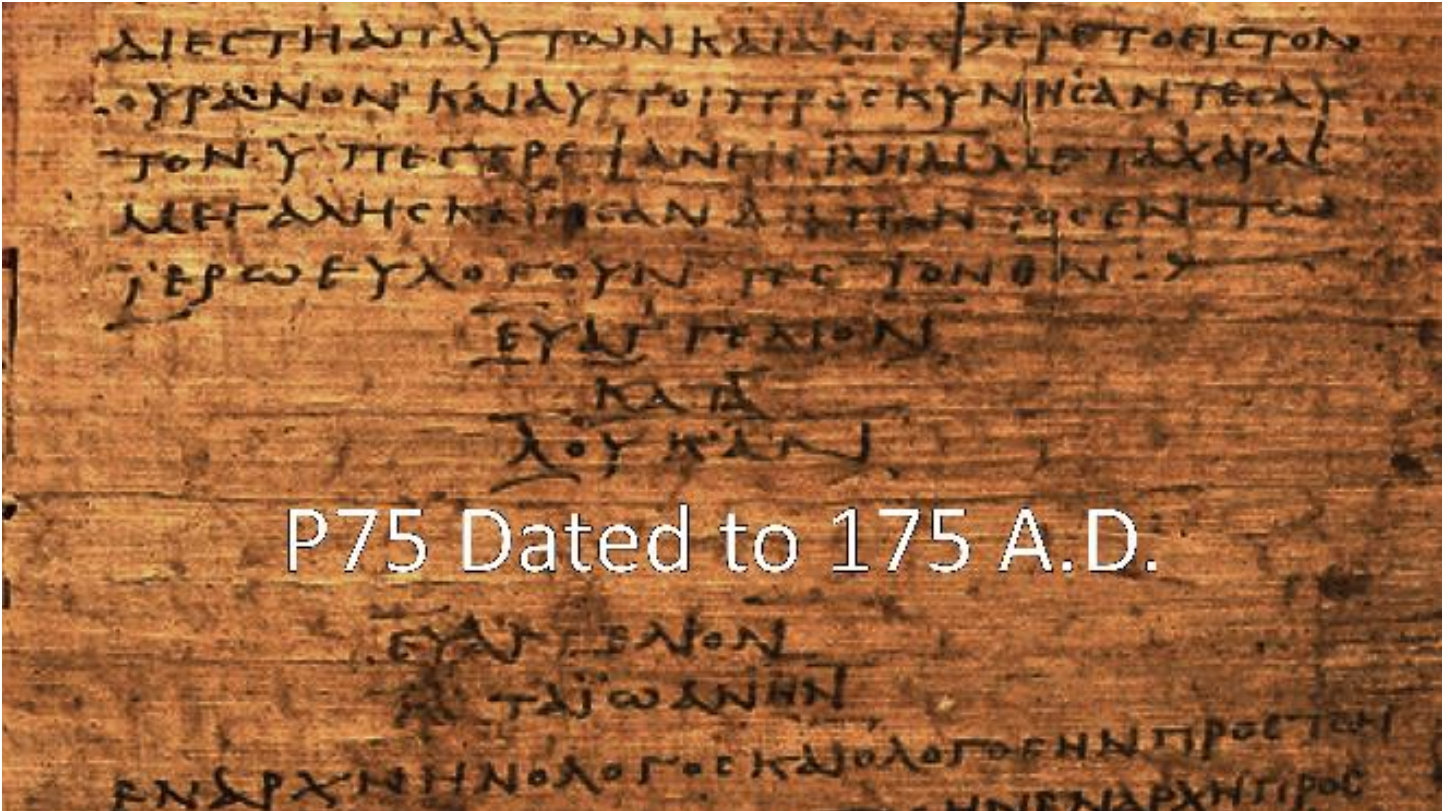 ΔΙΕCΤΗΑΠΑΥΤΩΝΚΑΙΑΝΕΦΕΡΕΤΟΕΙCΤΟΝ
ΟΥΡΑΝΟΝΚΑΙΑΥΤΟΙΠΡΟCΚΥΝΗCΑΝΤΕCΑΥ
ΤΟΝΥΠΕCΤΡΕΨΑΝΕΙCΙΛΗΜΜΕΤΑΧΑΡΑC
ΜΕΓΑΛΗCΚΑΙΗCΑΝΔΙΑΠΑΝΤΟCΕΝΤΩ
ΙΕΡΩΕΥΛΟΓΟΥΝΤΕCΤΟΝΘΝ
ΕΥΑΓΓΕΛΙΟΝ
ΚΑΤΑ
ΛΟΥΚΑΝ
P75 Dated to 175 A.D.
ΕΥΑΓΓΕΛΙΟΝ
ΚΑΤΑΪΩΑΝΗΝ
ΕΝΑΡΧΗΗΝΟΛΟΓΟCΚΑΙΟΛΟΓΟCΗΝΠΡΟCΤΟΝ
ΗΝΕΝΑΡΧΗΠΡΟC